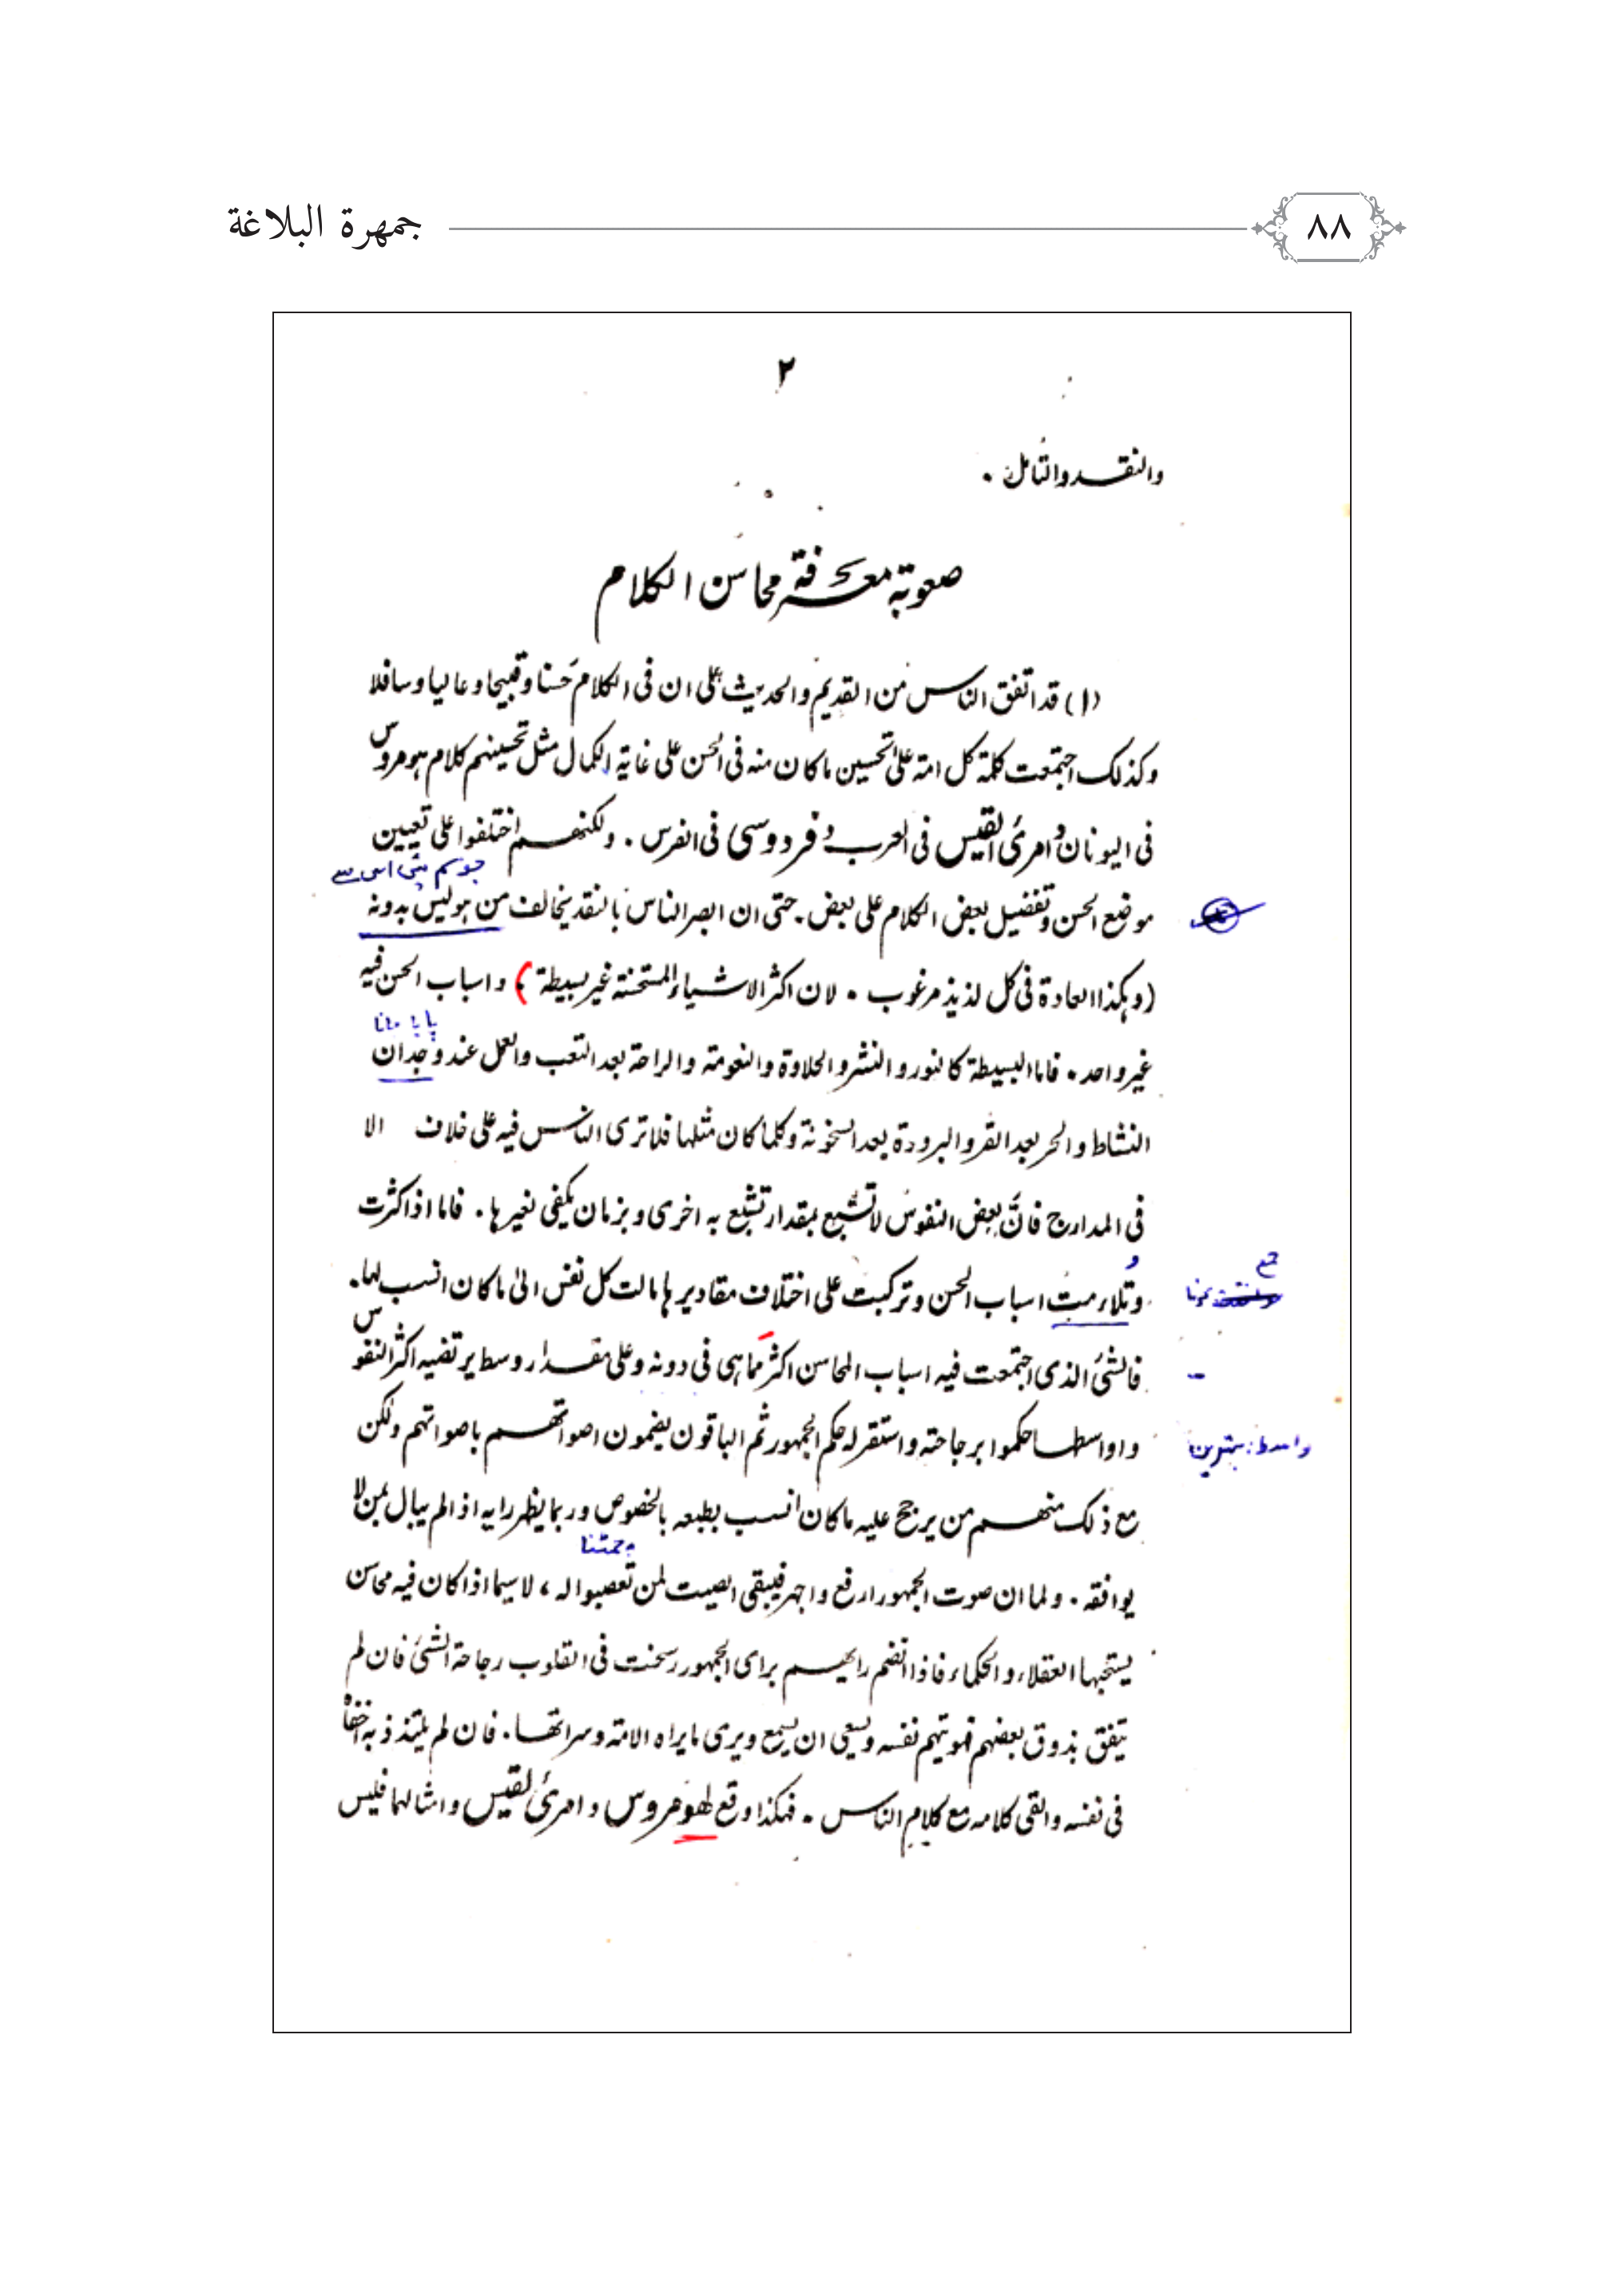 ٨٨
جمهرة البلاغة
٢
والنقد والتامل .
صعوبة معرفة محاسن الكلام
(١) قد اتفق الناس من القديم والحديث على ان فى الكلام حَسنا وقبيحا وعاليا وسافلا
وكذلك اجتمعت كلمة كل امة على تحسين ما كان منه فى الحسن على غاية الكمال مثل تحسينهم كلام هومروس
فى اليونان و امرئ القيس فى العرب و فردوسى فى الفرس . ولكنهم اختلفوا على تعيين
جو کم
اسی سے
موضع الحسن وتفضيل بعض الكلام على بعض . حتى ان ابصر الناس بالنقد يخالف من هو ليس بدونه
(وهكذا العادة فى كل لذيذ مرغوب . لان اكثر الاشياء المستحسنة غير بسيطة ) واسباب الحسن فيه
پانا
غير واحد . فاما البسيطة كالنور والنشر والحلاوة والنعومة والراحة بعد التعب والعمل عند وجدان
النشاط والحر بعد القر والبرودة بعد السخونة وكلما كان مثلها فلا ترى الناس فيه على خلاف الا
فى المدارج فانّ بعض النفوس لا تشبع بمقدار تشبع به اخرى وبزمان يكفى لغيرها . فاما اذا كثرت
جمع
ہونا
وتلاءمت اسباب الحسن وتركبت على اختلاف مقاديرها مالت كل نفس الى ما كان انسب لها .
فالشئ الذى اجتمعت فيه اسباب المحاسن اكثر مَما هى فى دونه وعلى مقدار وسط يرتضيه اكثر النفوس
واواسطها حكموا برجاحته واستقر له حكم الجمهور ثم الباقون يضمون اصواتهم باصواتهم ولكن
واسط : بہترین
مع ذلك منهم من يرجح عليه ما كان انسب بطبعه بالخصوص وربما يظهر رايه اذا لم يبال بمن لا
چمٹنا
يوافقه . ولما ان صوت الجمهور ارفع واجهر فيبقى الصيت لمن تعصبوا له ، لا سيما اذا كان فيه محاسن
يستحبها العقلاء والحكماء فاذا انضم رايهم براى الجمهور رسخت فى القلوب رجاحة الشئ فان لم
يتفق بذوق بعضهم فهو يتهم نفسه ويسعى ان يسمع ويرى ما يراه الامة وسراتها . فان لم يلتذذ به اخفاْ
فى نفسه والقى كلامه مع كلام الناس . فهكذا وقع لهومروس و امرئ القيس وامثالهما فليس